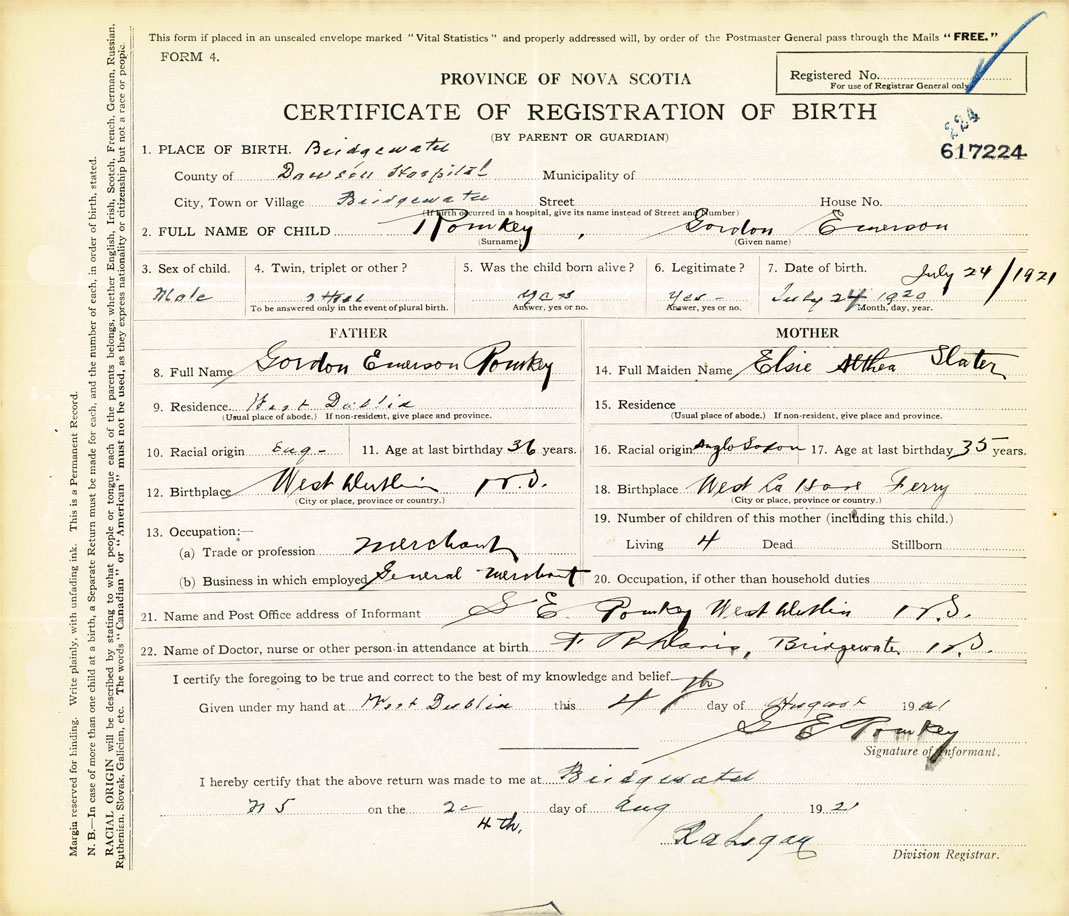 This form if placed in an unsealed envelope marked "Vital Statistics" and properly addressed will, by order of the Postmaster General pass through the Mails "FREE."
FORM 4.
PROVINCE OF NOVA SCOTIA
Registered No.
For use of Registrar General only
CERTIFICATE OF REGISTRATION OF BIRTH
(BY PARENT OR GUARDIAN)
224
617224
1. PLACE OF BIRTH. Bridgewater
County of Dawson Hospital Municipality of
City, Town or Village Bridgewater Street House No.
(If birth occurred in a hospital, give its name instead of Street and Number)
2. FULL NAME OF CHILD Romkey, Gordon Emerson
(Surname) (Given name)
3. Sex of child. 4. Twin, triplet or other? 5. Was the child born alive? 6. Legitimate? 7. Date of birth. July 24/1921
Male yes yes - July 24 1920
To be answered only in the event of plural birth. Answer, yes or no. Answer, yes or no. Month, day, year.
FATHER MOTHER
8. Full Name Gordon Emerson Romkey 14. Full Maiden Name Elsie Althea Slater
9. Residence West Dublin 15. Residence
(Usual place of abode.) If non-resident, give place and province. (Usual place of abode.) If non-resident, give place and province.
10. Racial origin Eng- 11. Age at last birthday 36 years. 16. Racial origin Anglo Saxon 17. Age at last birthday 35 years.
12. Birthplace West Dublin N.S. 18. Birthplace West La Have Ferry
(City or place, province or country.) (City or place, province or country.)
13. Occupation:— 19. Number of children of this mother (including this child.)
(a) Trade or profession merchant Living 4 Dead Stillborn
(b) Business in which employed General merchant 20. Occupation, if other than household duties
21. Name and Post Office address of Informant G E Romkey West Dublin N.S.
22. Name of Doctor, nurse or other person in attendance at birth F R Davis, Bridgewater N.S.
I certify the foregoing to be true and correct to the best of my knowledge and belief
Given under my hand at West Dublin this 4th day of August 1921
G E Romkey
Signature of Informant.
I hereby certify that the above return was made to me at Bridgewater
N S on the 2- day of Aug 1921
4th.
Division Registrar.
Margin reserved for binding. Write plainly, with unfading ink. This is a Permanent Record.
N. B.—In case of more than one child at a birth, a Separate Return must be made for each, and the number of each, in order of birth, stated.
RACIAL ORIGIN will be described by stating to what people or tongue each of the parents belongs, whether English, Irish, Scotch, French, German, Russian,
Ruthenian, Slovak, Galician, etc. The words "Canadian" or "American" must not be used, as they express nationality or citizenship but not a race or people.